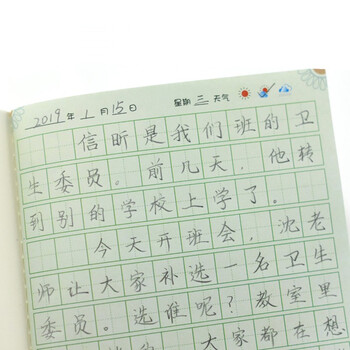 2019年1月15日 星期三天气
信昕是我们班的卫
生委员。前几天,他转
到别的学校上学了。
今天开班会,沈老
师让大家补选一名卫生
委员。选谁呢?教室里
大家都在想